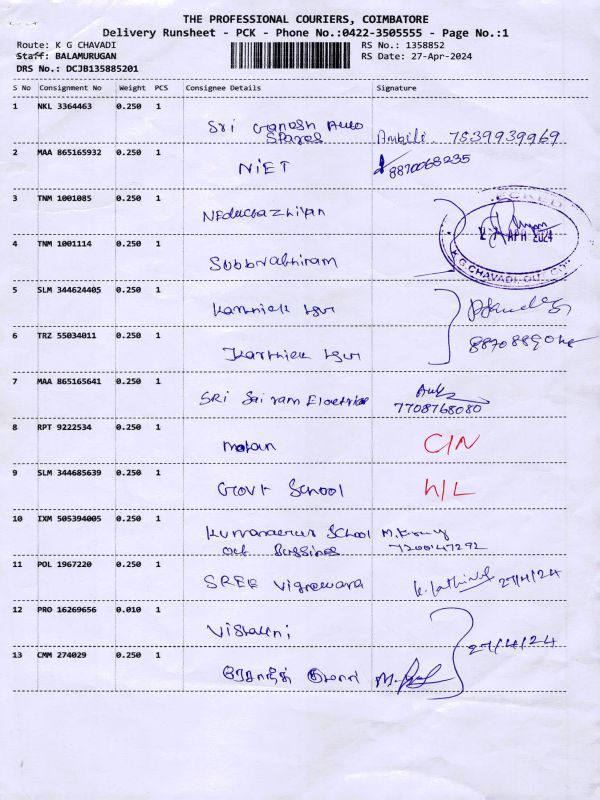 THE PROFESSIONAL COURIERS, COIMBATORE
Delivery Runsheet - PCK - Phone No.:0422-3505555 - Page No.:1
Route: K G CHAVADI RS No.: 1358852
Staff: BALAMURUGAN RS Date: 27-Apr-2024
DRS No.: DCJB135885201
S No Consignment No Weight PCS Consignee Details Signature
1 NKL 3364463 0.250 1
Sri Ganesh Auto
Spares 7539939969
2 MAA 865165932 0.250 1
NiET 8870068235
3 TNM 1001085 0.250 1
Neduchazhiyan
4 TNM 1001114 0.250 1
APR 2024
K.G. CHAVADI,
5 SLM 344624405 0.250 1
6 TRZ 55034011 0.250 1
7 MAA 865165641 0.250 1
SRI Sai ram
7708768080
8 RPT 9222534 0.250 1
C/N
9 SLM 344685639 0.250 1
Govt School
10 IXM 505394005 0.250 1
School
7200147292
11 POL 1967220 0.250 1
27/4/24
12 PRO 16269656 0.010 1
13 CMM 274029 0.250 1
27/4/24